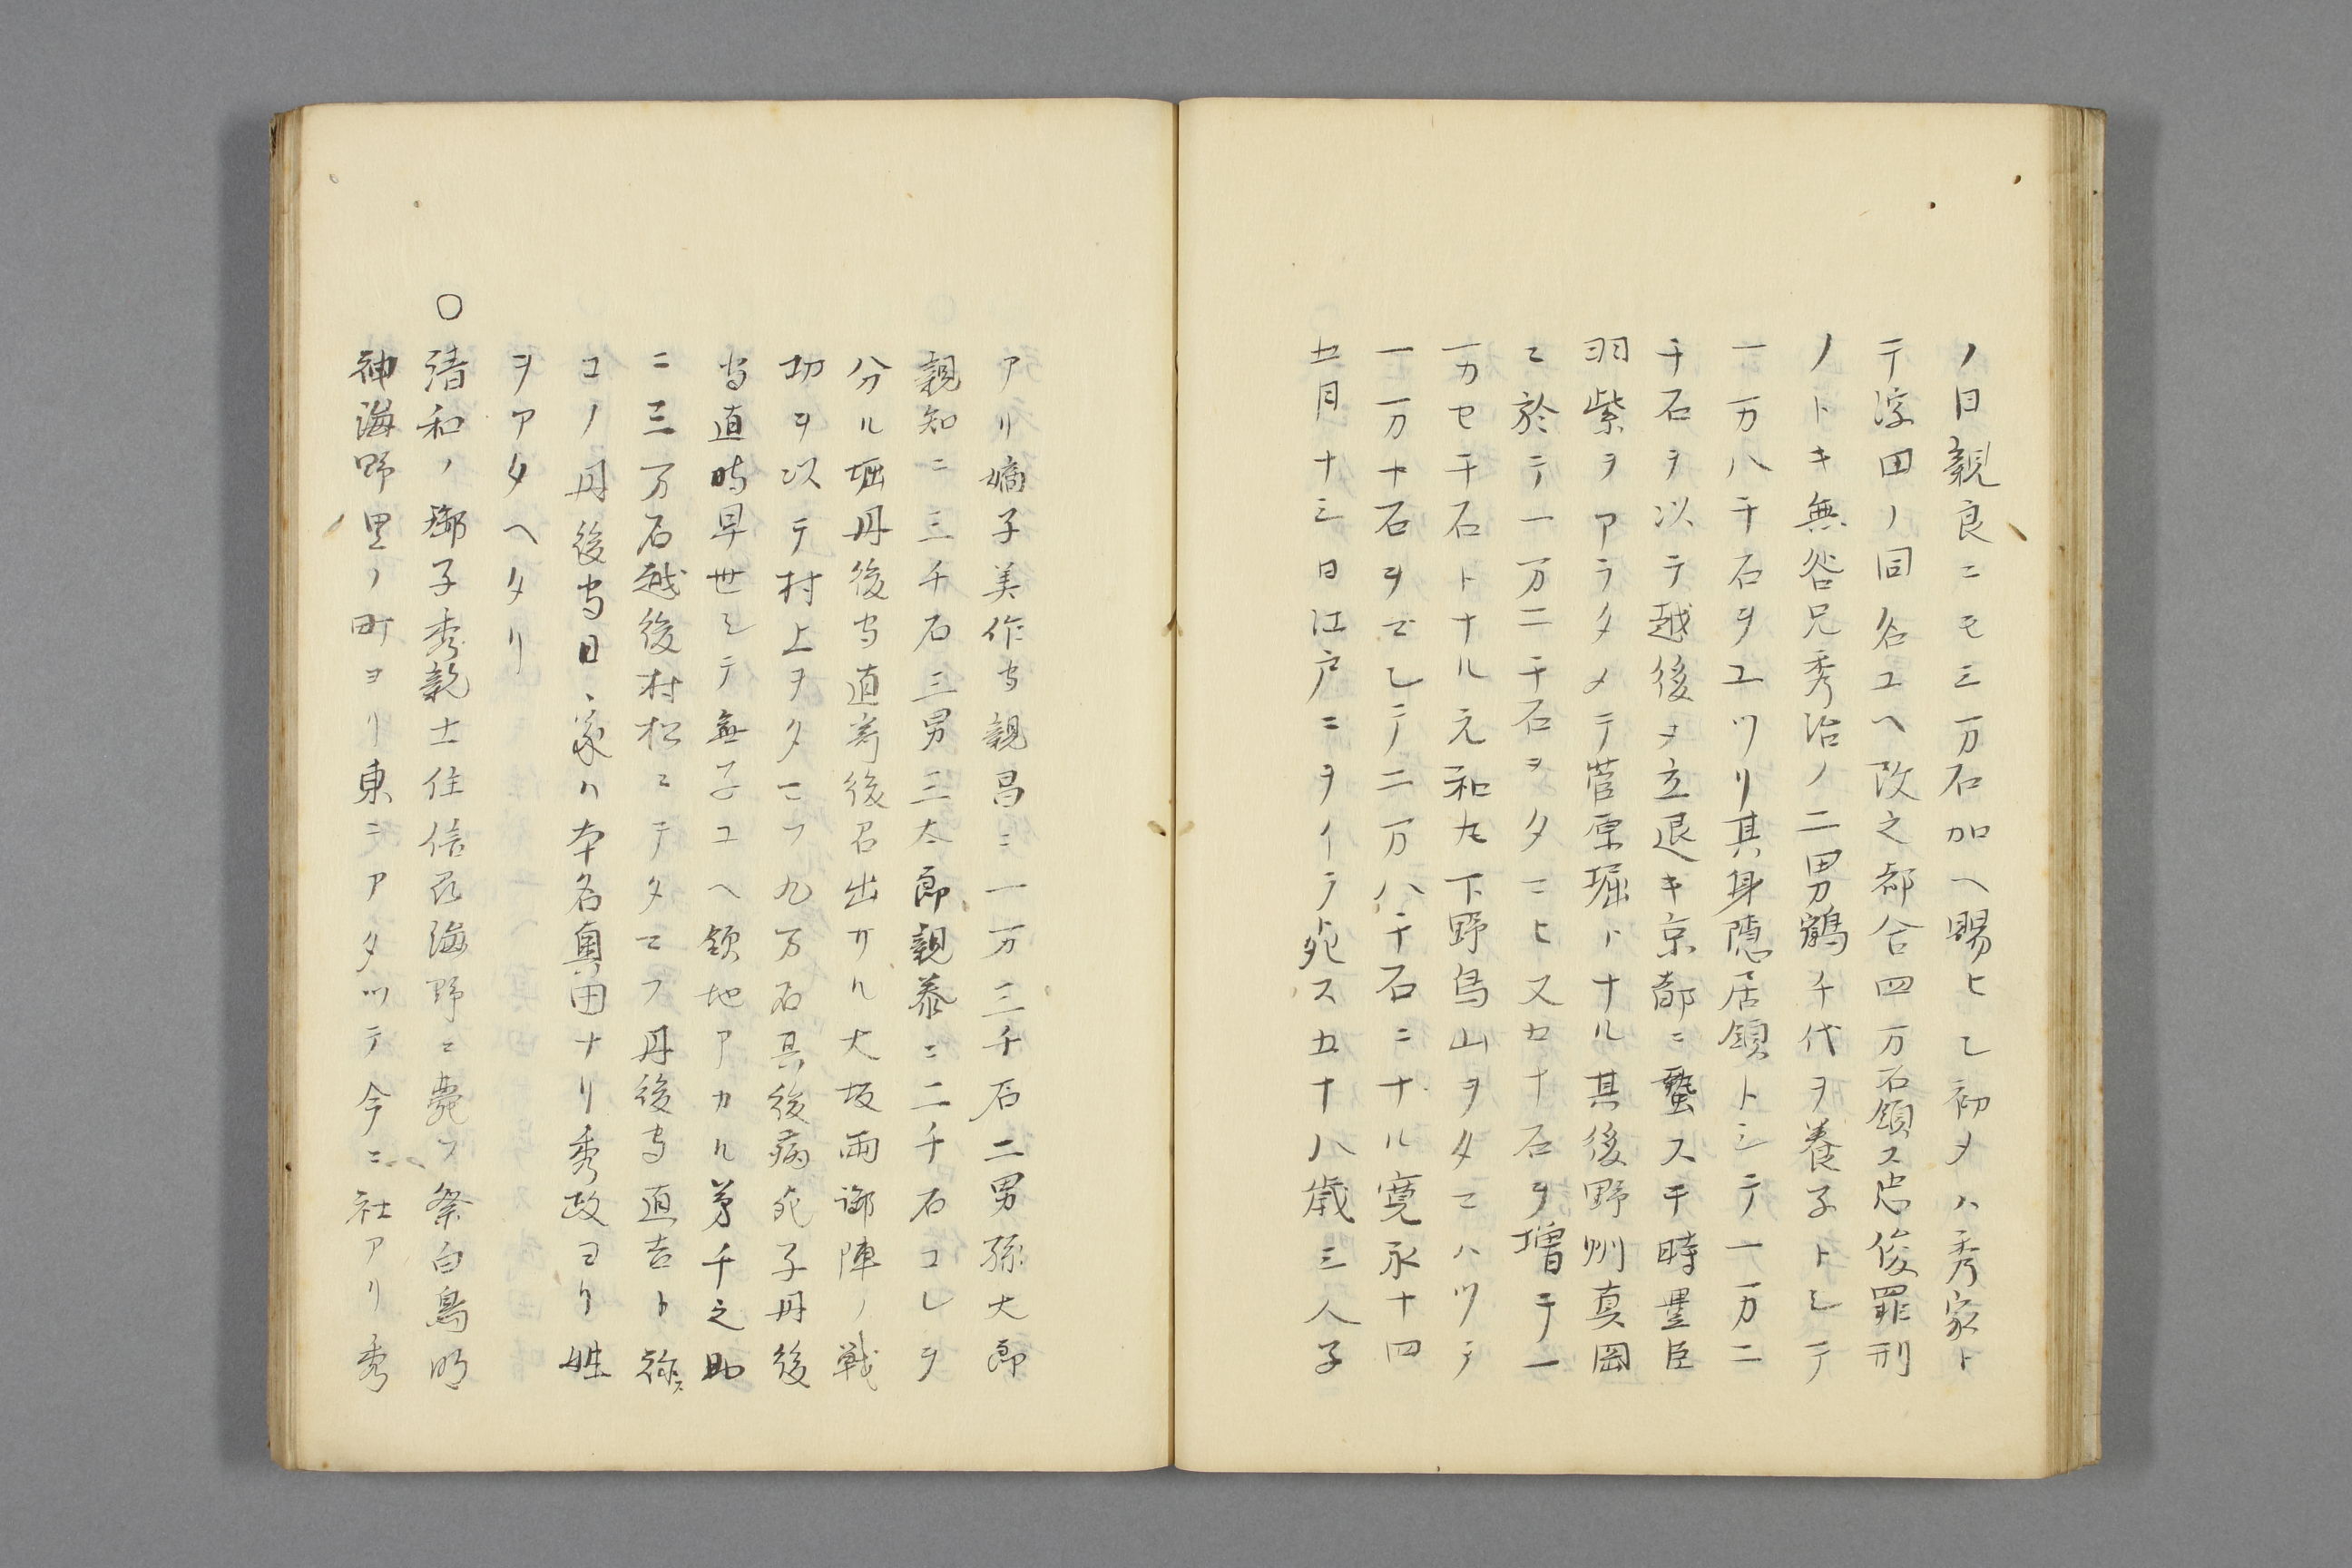 ノ日親良ニモ三万石加ヘ賜ヒシ初メハ秀家ト
テ浮田ノ同名ユヘ改之都合四万石領ス忠俊罪刑
ノトキ無咎兄秀治ノ二男鶴千代ヲ養子トシテ
一万八千石ヲユツリ其身隠居領トシテ一万二
千石ヲ以テ越後ヲ立退キ京都ニ蟄ス干時豊臣
羽紫ヲアラタメテ菅原堀トナル其後野州真岡
ニ於テ一万二千石ヲタマヒ又五千石ヲ増テ一
万七千石トナル元和九下野烏山ヲタマハツテ
一万千石ヲマシテ二万八千石ニナル寛永十四
五月十三日江戸ニヲイテ死ス五十八歳三人子
アリ嫡子美作守親昌ニ一万三千石二男孫太郎
親知ニ三千石三男三太郎親泰ニ二千石コレヲ
分ル堀丹後守直寄後召出サル大坂両御陣ノ戦
功ヲ以テ村上ヲタマフ九万石其後病死子丹後
守直時早世シテ無子ユヘ領地アカル弟千之助
ニ三万石越後村松ニテタマフ丹後守直吉ト称ス
コノ丹後守日、家ハ本名奥田ナリ秀政ヨリ姓
ヲアタヘタリ
○清和ノ御子秀親土住信州海野ニ薨フ祭白鳥明
神海野里ノ町ヨリ東ニアタツテ今ニ社アリ秀